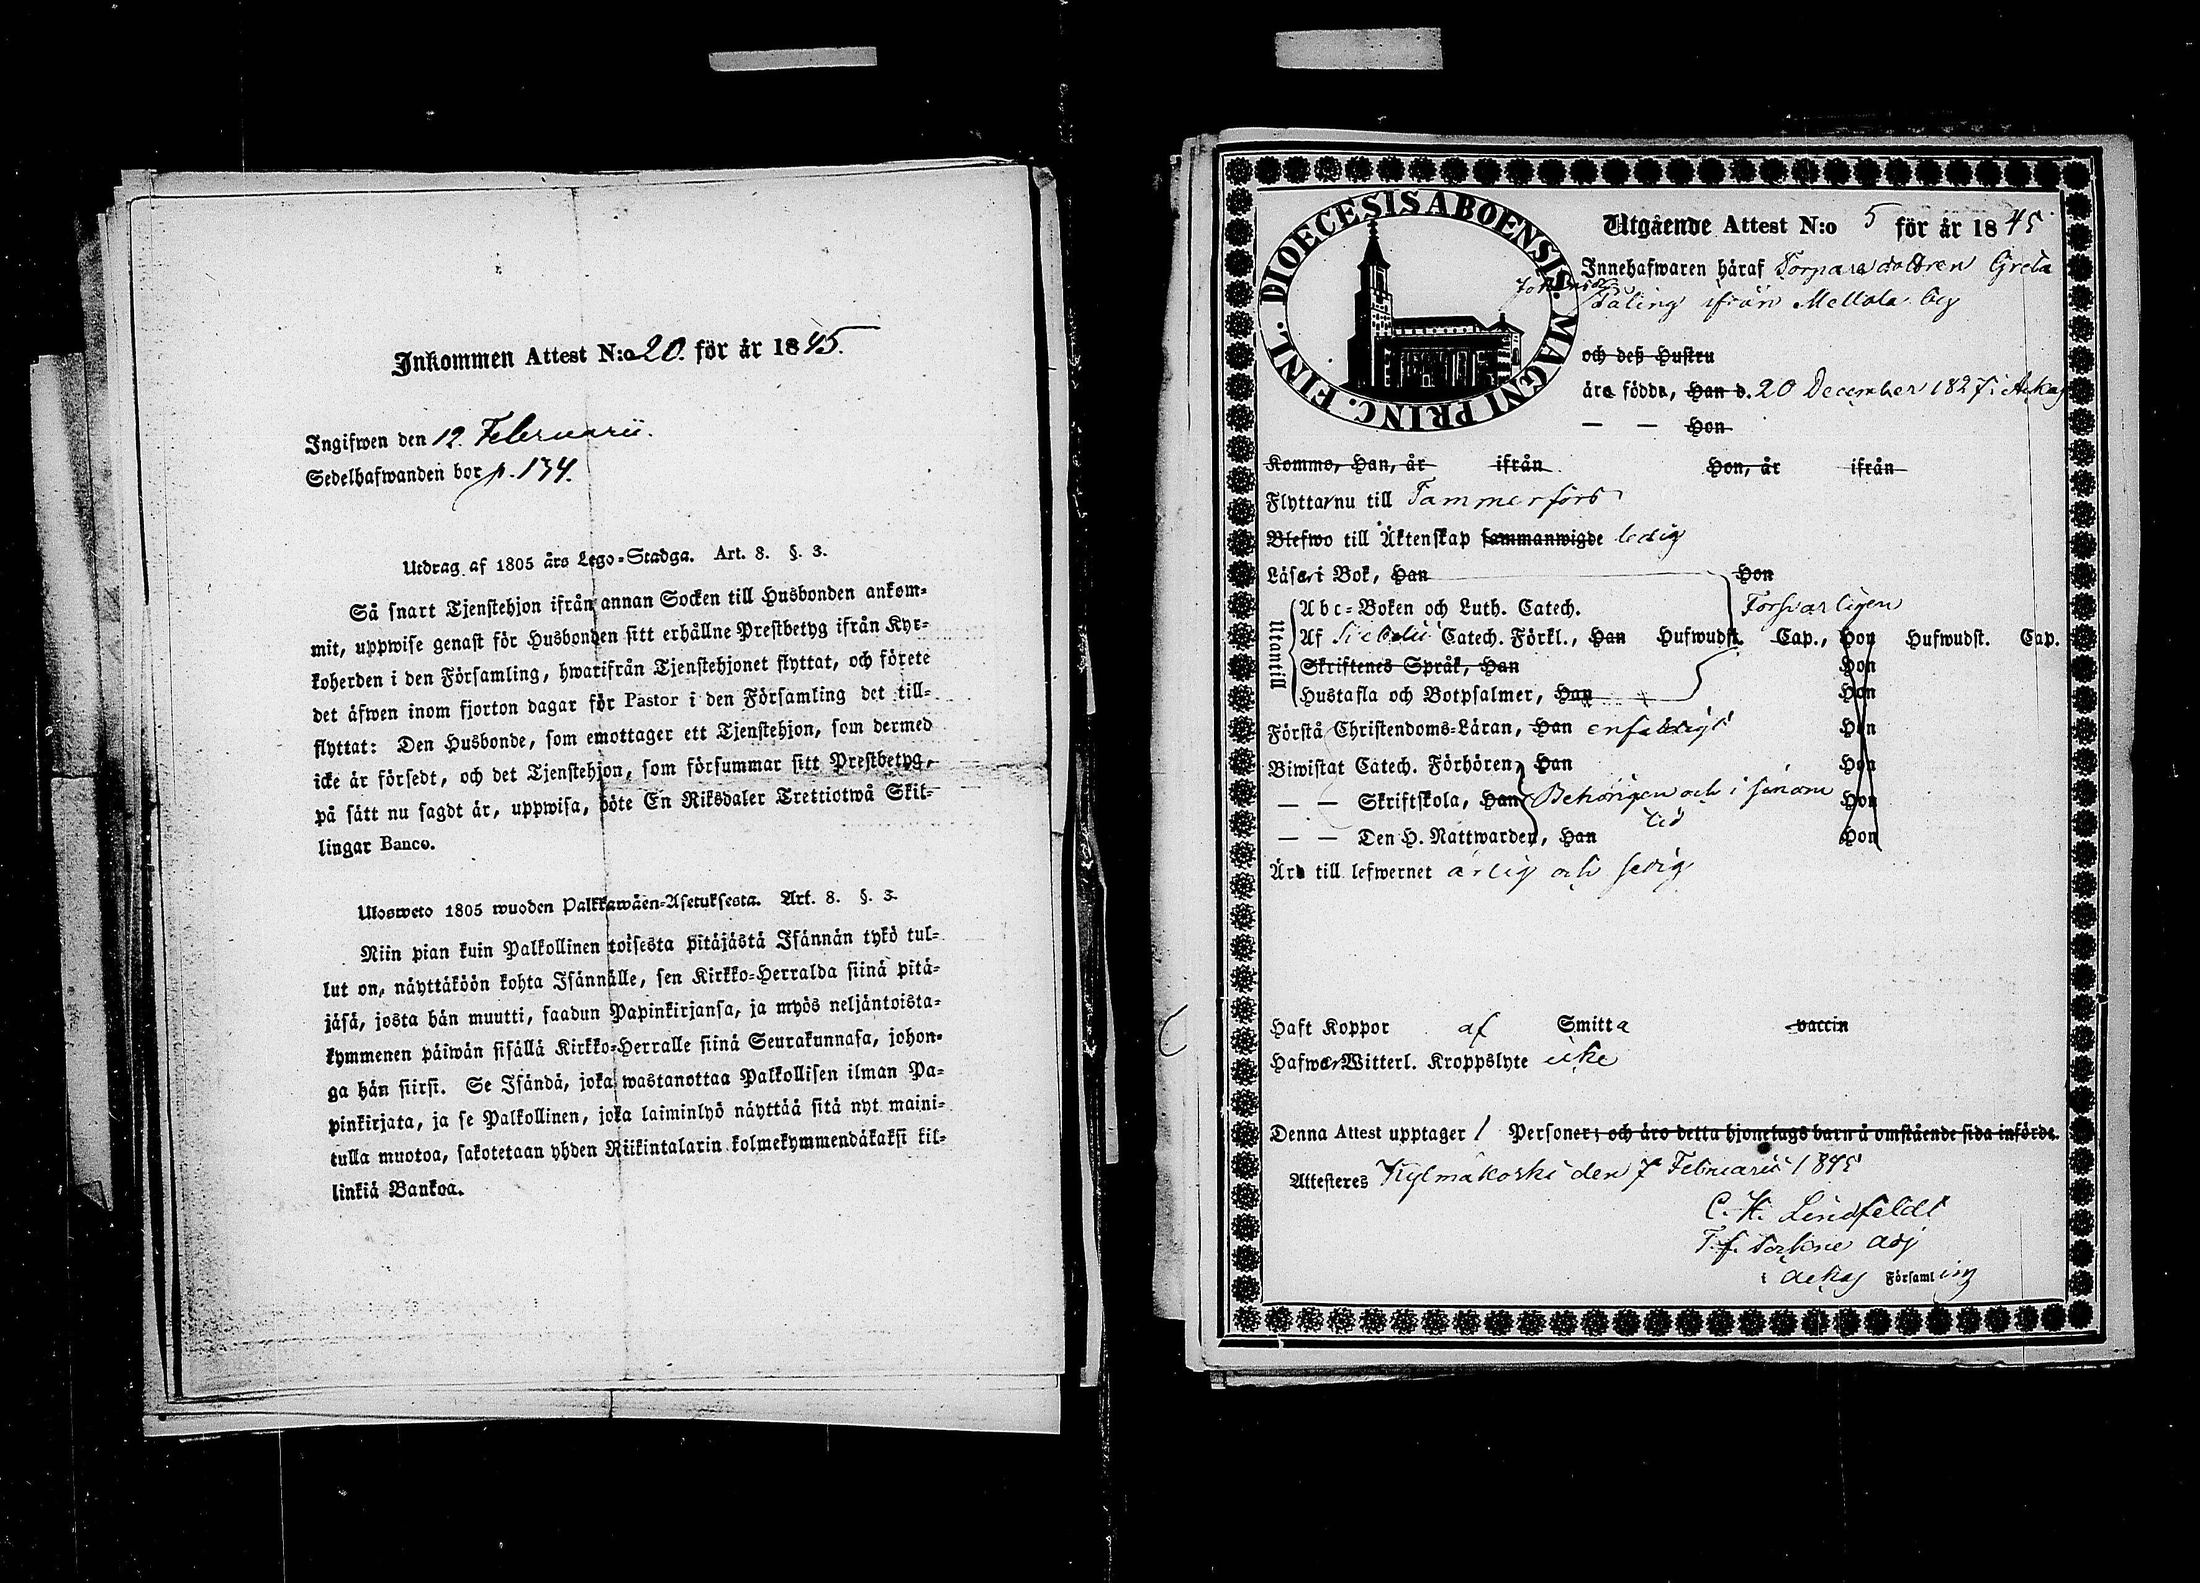 Inkommen Attest N:o 20. för år 1845.
Ingifwen den 12. Februarii.
Sedelhafwanden bor p. 134.
Utdrag af 1805 års Lego-Stadga. Art. 8. §. 3.
Så snart Tjenstehjon ifrån annan Socken till Husbonden ankom-
mit, uppwise genast för Husbonden sitt erhållne Prestbetyg ifrån Kyr-
koherden i den Församling, hwarifrån Tjenstehjonet flyttat, och förete
det äfwen inom fjorton dagar för Pastor i den Församling det till-
flyttat: Den Husbonde, som emottager ett Tjenstehjon, som dermed
icke är försedt, och det Tjenstehjon, som försummar sitt Prestbetyg,
på sätt nu sagdt är, uppwisa, böte En Riksdaler Trettiotwå Skil-
lingar Banco.
Ulosweto 1805 wuoden Palkkawäen-Asetuksesta. Art. 8. §. 3.
Niin pian kuin Palkollinen toisesta pitäjästä Isännän tykö tul-
lut on, näyttäköön kohta Isännälle, sen Kirkko-Herralda siinä pitä-
jäsä, josta hän muutti, saadun Papinkirjansa, ja myös neljäntoista-
kymmenen päiwän sisällä Kirkko-Herralle siinä Seurakunnasa, johon-
ga hän siirsi. Se Isändä, joka wastanottaa Palkollisen ilman Pa-
pinkirjata, ja se Palkollinen, joka laiminlyö näyttää sitä nyt maini-
tulla muotoa, sakotetaan yhden Riikintalarin kolmekymmendäkaksi kil-
linkiä Bankoa.
DIOECESIS ABOENSIS. MAGNI PRINC. FINL.
Utgående Attest N:o 5 för år 1845
Innehafwaren häraf Torpare dottren Greta
ifrån Mellola by
och deß Hustru
äro födde, Han d. 20 December 1827 i Ackas
— — Hon
Kommo, Han, år ifrån Hon, år ifrån
Flyttar nu till Tammerfors
Blefwo till Äktenskap sammanwigde ledig
Läser i Bok, Han Hon
Abc-Boken och Luth. Catech. Försvarligen
Utantill
Af Sebelii Catech. Förkl., Han Hufwudst. Cap., Hon Hufwudst. Cap.
Skriftenes Språk, Han Hon
Hustafla och Botpsalmer, Han Hon
Förstå Christendoms-Läran, Han enfaldigt Hon
Biwistat Catech. Förhören, Han Hon
— — Skriftskola, Han Behörigen och i sinom Hon
tid
— — Den H. Nattwarden, Han Hon
Äro till lefwernet ärlig och sedig
Haft Koppor af Smitta vaccin
Hafwer Witterl. Kroppslyte icke
Denna Attest upptager 1 Personer; och äro detta hjonelags barn å omstående sida införde.
Attesteres Kylmäkoski den 7 Februarii 1845
C. H. Lindfeldt
T. f. Sockne adj
i Ackas Församling